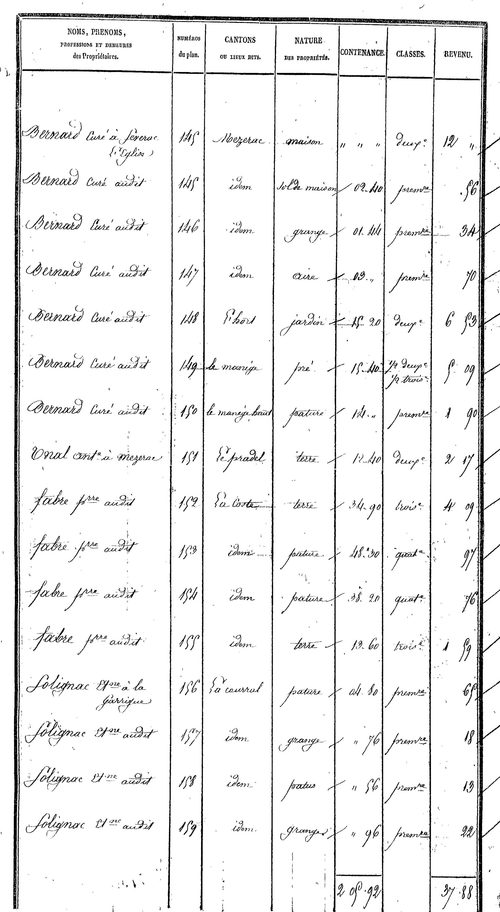 NOMS, PRENOMS, PROFESSIONS ET DEMEURES des Propriétaires. | NUMÉROS du plan. | CANTONS OU LIEUX DITS. | NATURE DES PROPRIÉTÉS. | CONTENANCE. | CLASSES. | REVENU.
Bernard Curé à Severac | 145 | Mezerac | maison | " " " | deuxe | 12 "
(L'Eglise)
Bernard Curé audit | 145 | idem | sol de maison | 02.40 | premre | .56
Bernard Curé audit | 146 | idem | grange | 01.44 | premre | 34
Bernard Curé audit | 147 | idem | aire | 03. " | premre | 70
Bernard Curé audit | 148 | L'hort | jardin | 15.20 | deuxe | 6 53
Bernard Curé audit | 149 | le manége | pré | 15.40 | 1/2 deuxe | 5 09
1/2 troise
Bernard Curé audit | 150 | le manége haut | pature | 14. " | premre | 1 90
antne à mezerac | 151 | Le pradel | terre | 12.40 | deuxe | 2 17
fabre prre audit | 152 | La Coste | terre | 34.90 | troise | 4 09
fabre prre audit | 153 | idem | pature | 48.30 | quate | 97
fabre prre audit | 154 | idem | pature | 38.20 | quate | 76
fabre prre audit | 155 | idem | terre | 13.60 | troise | 1 59
Solignac Etne à la | 156 | La | pature | 04.80 | premre | 65
Garrigue
Solignac Etne audit | 157 | idem | grange | " 76 | premre | 18
Solignac Etne audit | 158 | idem | patus | " 56 | premre | 13
Solignac Etne audit | 159 | idem | granges | " 96 | premre | 22
2 05.92 | 37.88